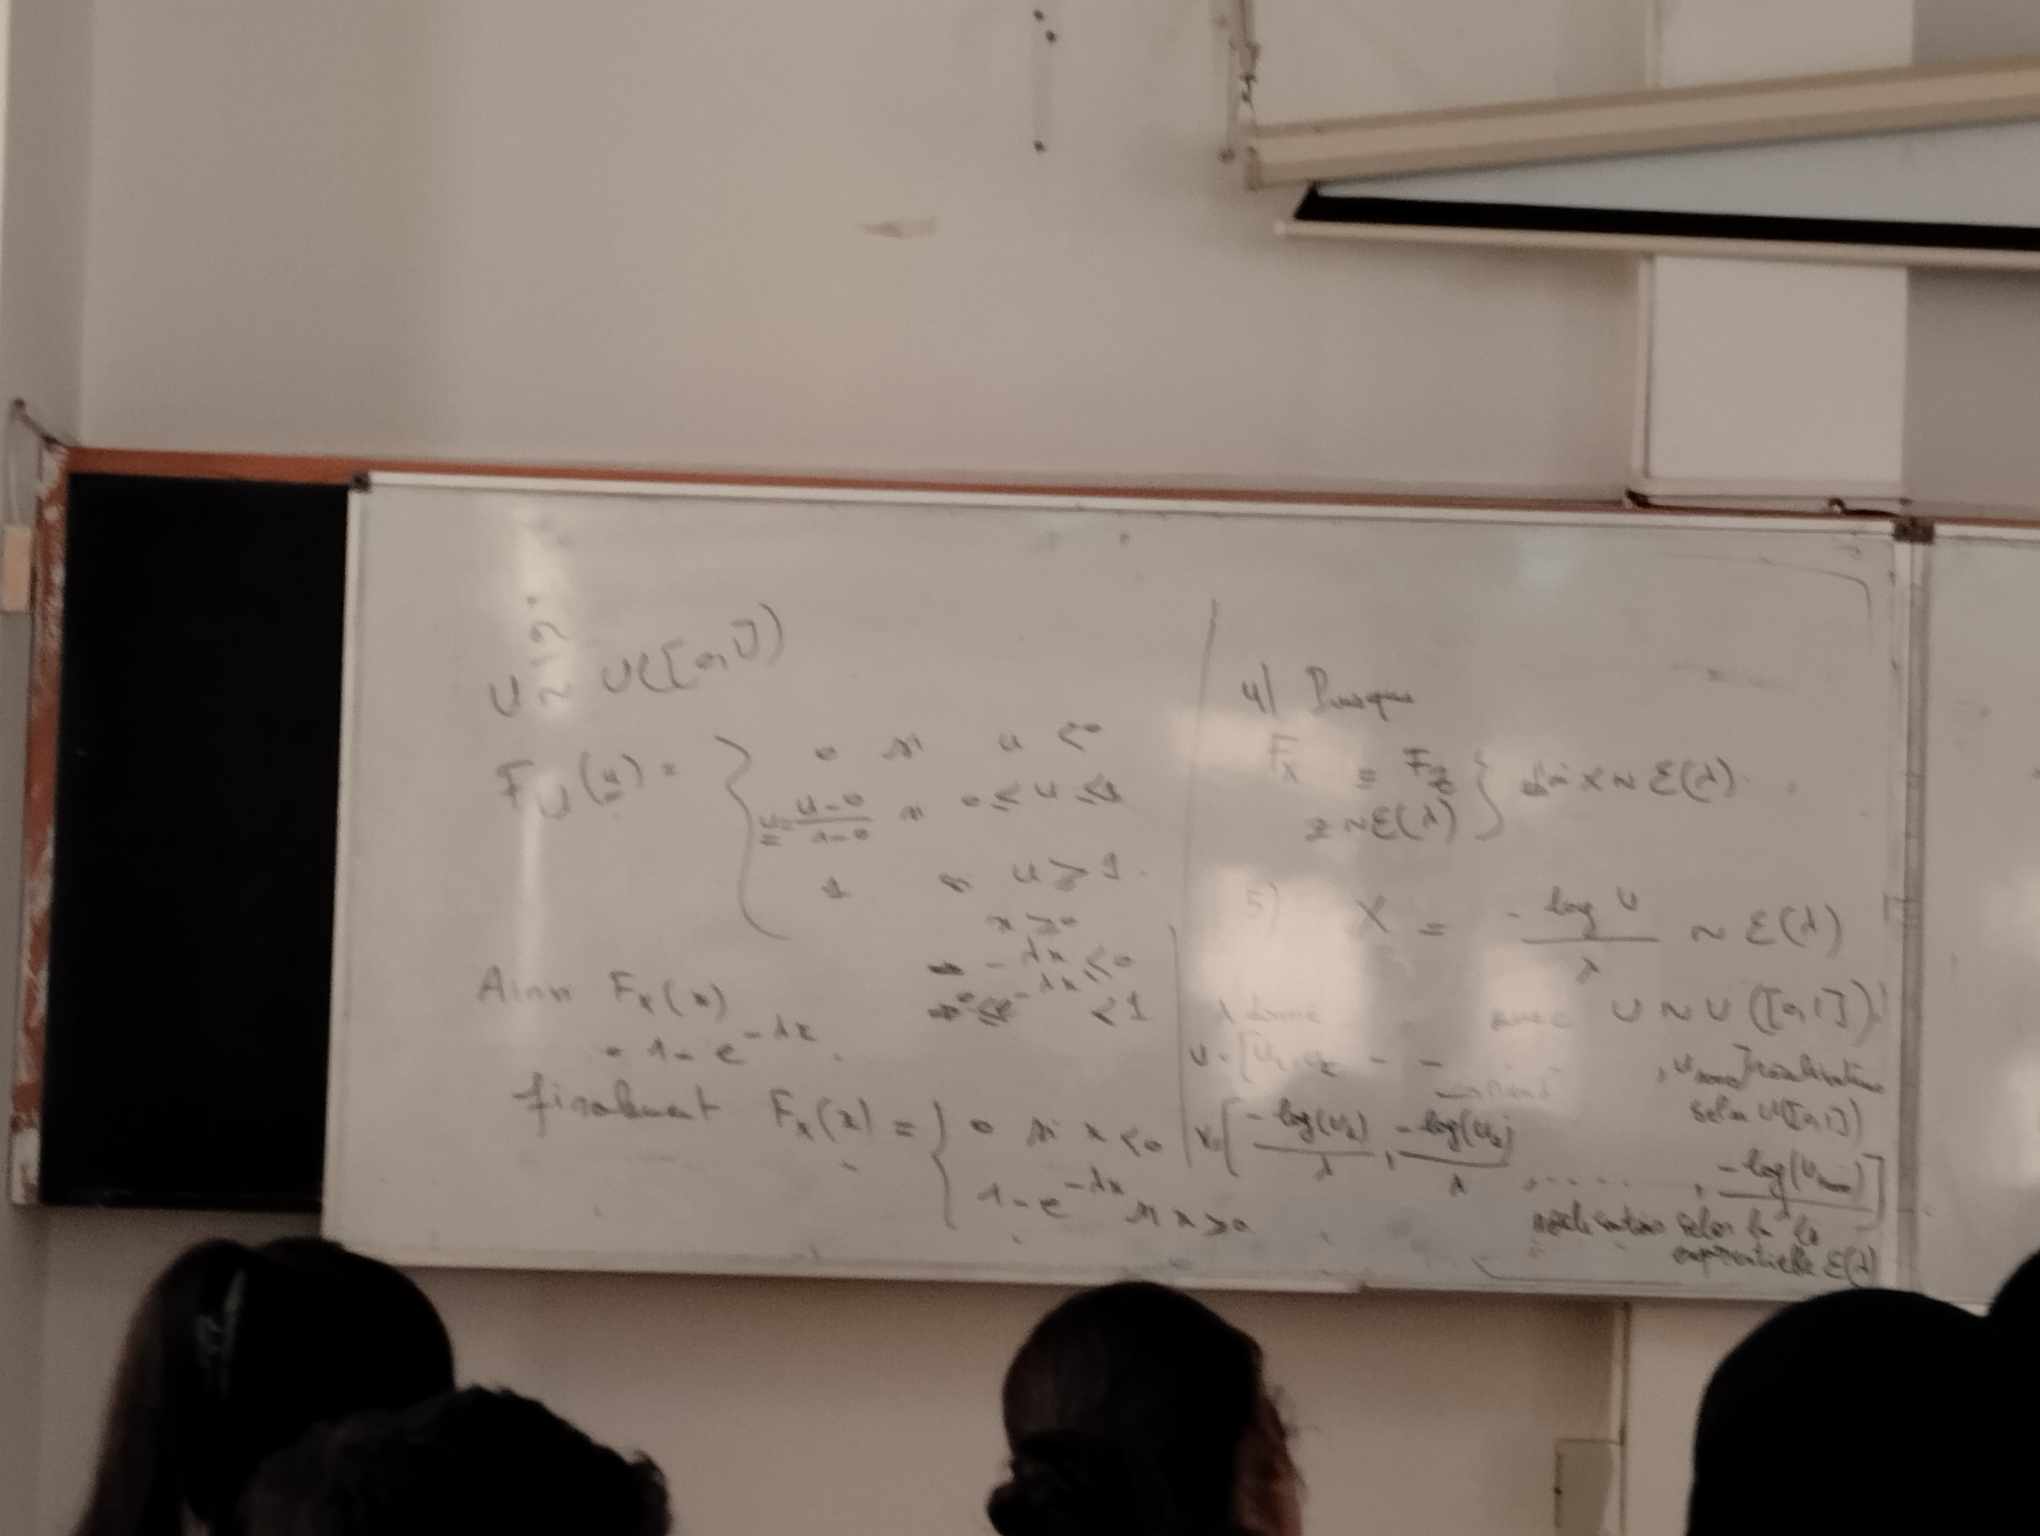 U ~ U([0,1])
F_U(u) = { 0 si u < 0
u = (u-0)/(1-0) si 0 ≤ u ≤ 1
1 si u ≥ 1.
x ≥ 0
⇒ -λx ≤ 0
⇒ 0 ≤ e^{-λx} < 1
Ainsi F_X(x)
= 1 - e^{-λx}.
finalement F_X(x) = { 0 si x < 0
1 - e^{-λx} si x ≥ 0
4) Puisque
F_X = F_Z
Z ~ E(λ) } X ~ E(λ).
5) X = - log U / λ ~ E(λ)
λ donné avec U ~ U([0,1])
U = [U_1, U_2 - - , U réalisations
selon U([0,1])
X = [ -log(U_1)/λ , -log(U_2)/λ , ..... , -log(U )/λ ]
réalisation selon la loi
exponentielle E(λ)